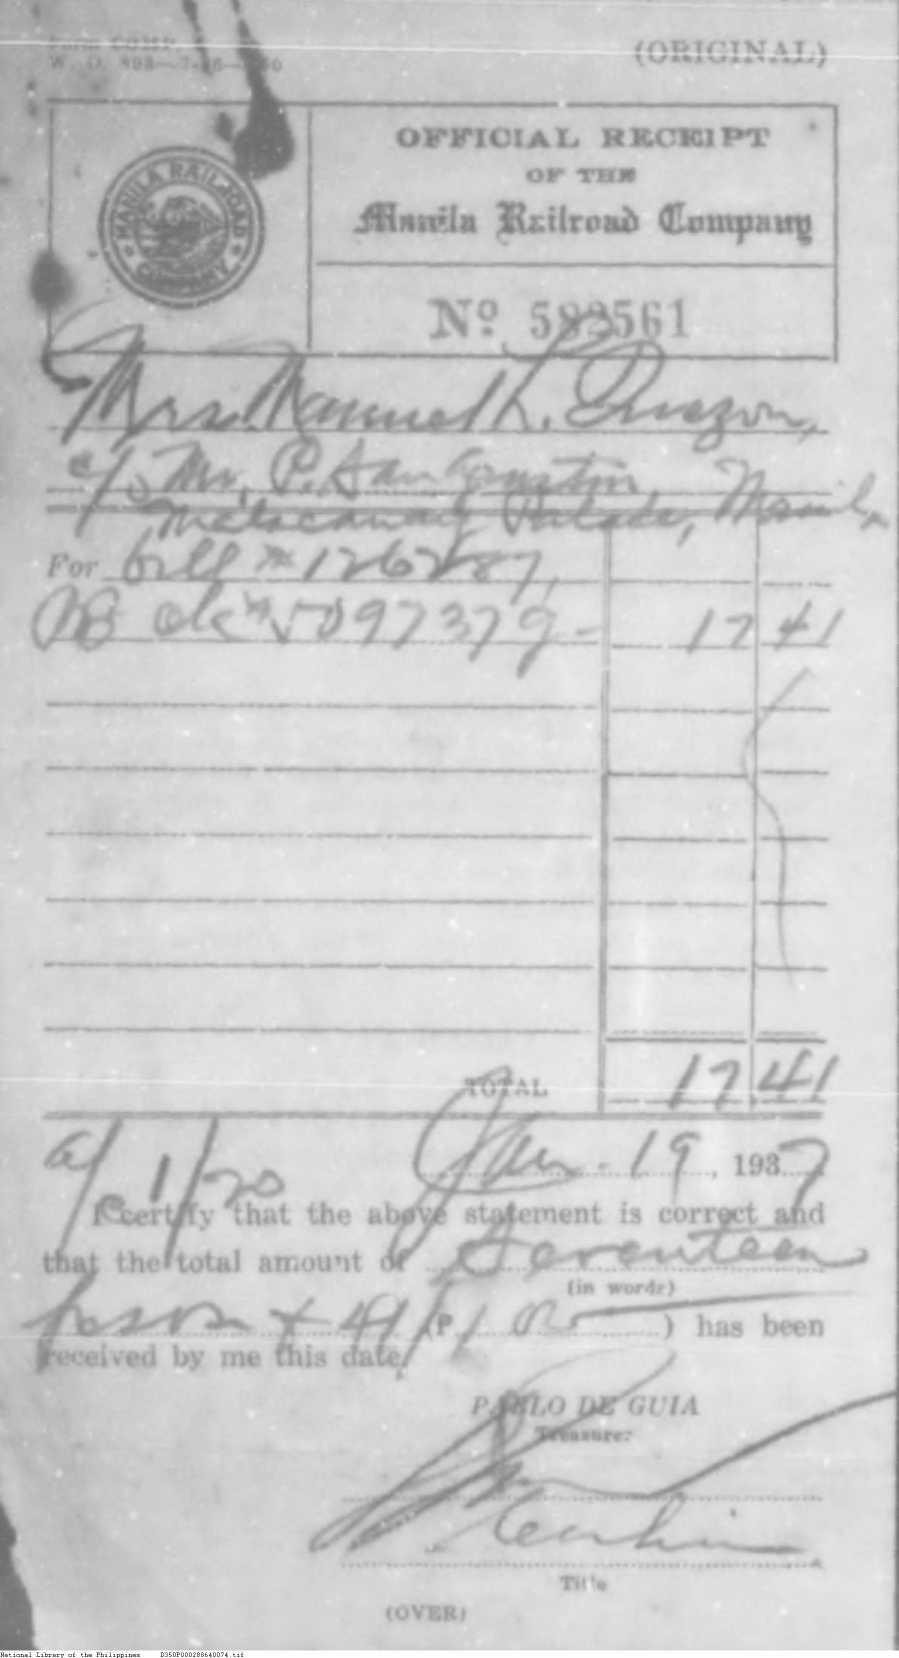 Form COMP.
W. O. 898—7-16—
(ORIGINAL)
MANILA RAILROAD COMPANY
OFFICIAL RECEIPT
OF THE
Manila Railroad Company
Nº 582561
Mrs. Manuel L. Quezon,
c/o Mr. P. San Agustin,
Malacañang Palace, Manila
For bill № 1262287,
ck № 5097379 — 17 41
TOTAL 17 41
1/20
Jan - 19, 1937
I certify that the above statement is correct and
that the total amount of Seventeen
(in words)
pesos & 41/100 (P ) has been
received by me this date.
PABLO DE GUIA
Treasurer
Cashier
Title
(OVER)
National Library of the Philippines D350P000288640074.tif